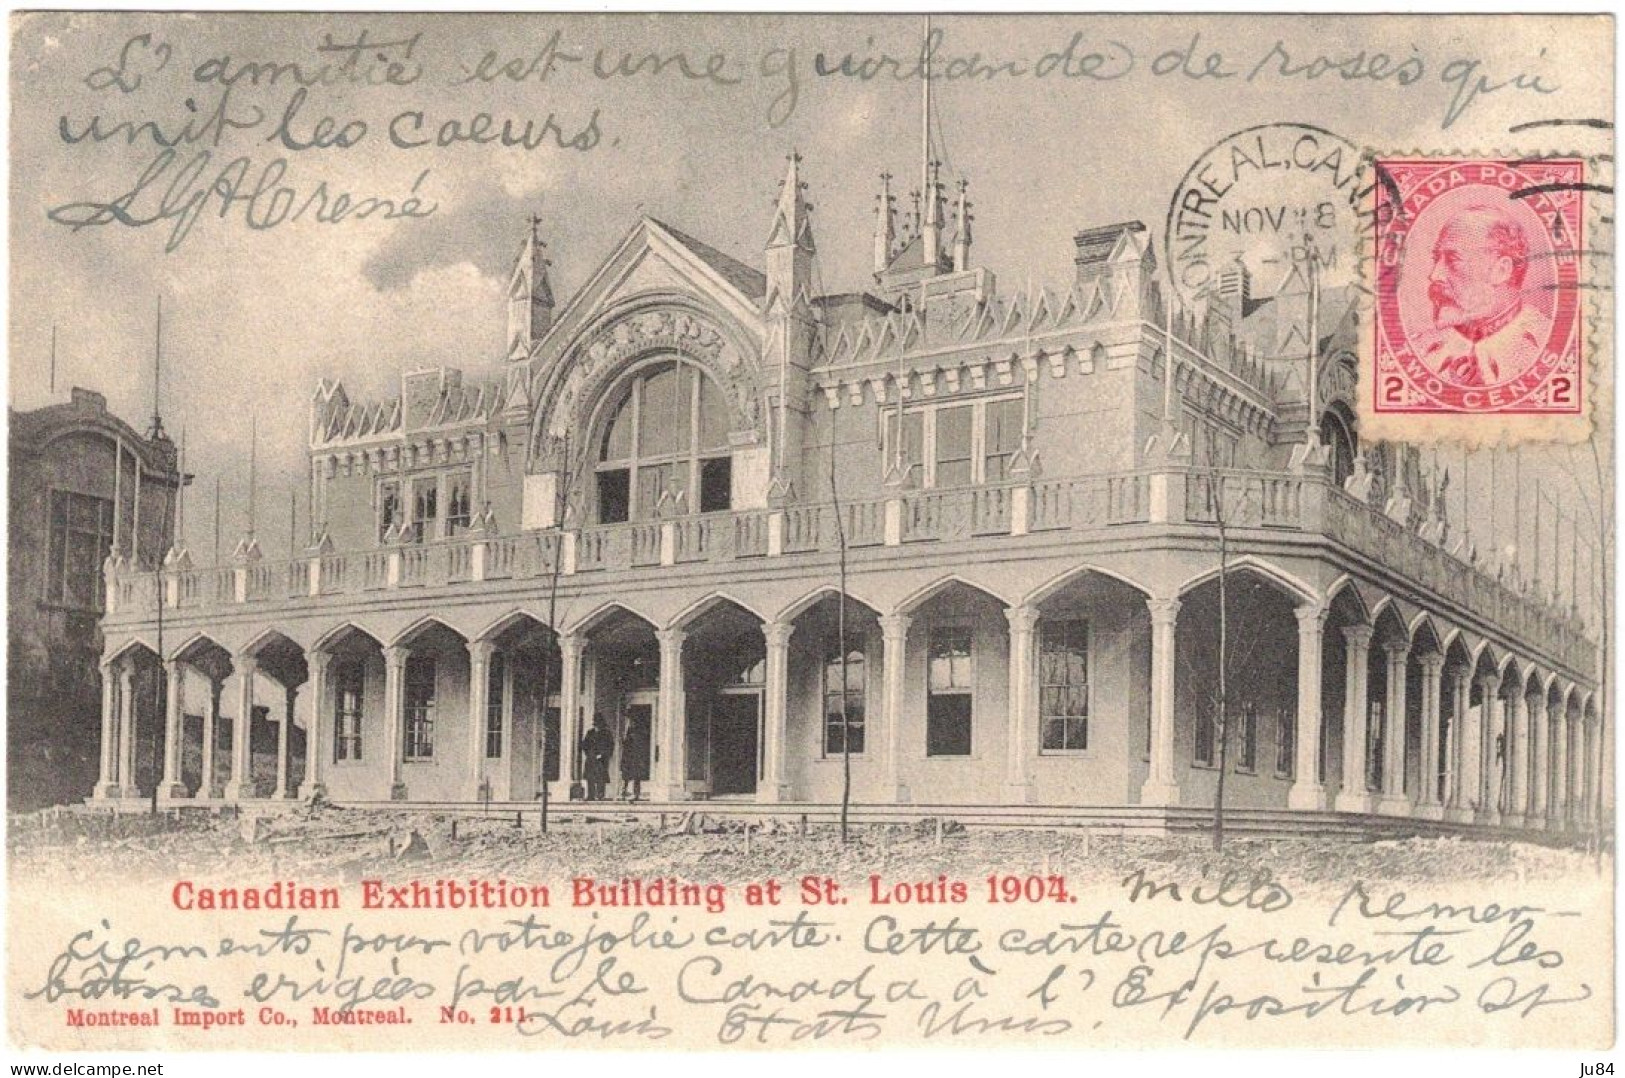 L'amitié est une guirlande de roses qui
unit les coeurs.
MONTREAL, CAN.
NOV 8
PM
CANADA POSTAGE
2 TWO CENTS 2
Canadian Exhibition Building at St. Louis 1904.
Mille remer-
ciements pour votre jolie carte. Cette carte represente les
bâtisses erigées par le Canada à l'Exposition St
Louis États Unis.
Montreal Import Co., Montreal. No. 211.
ju84